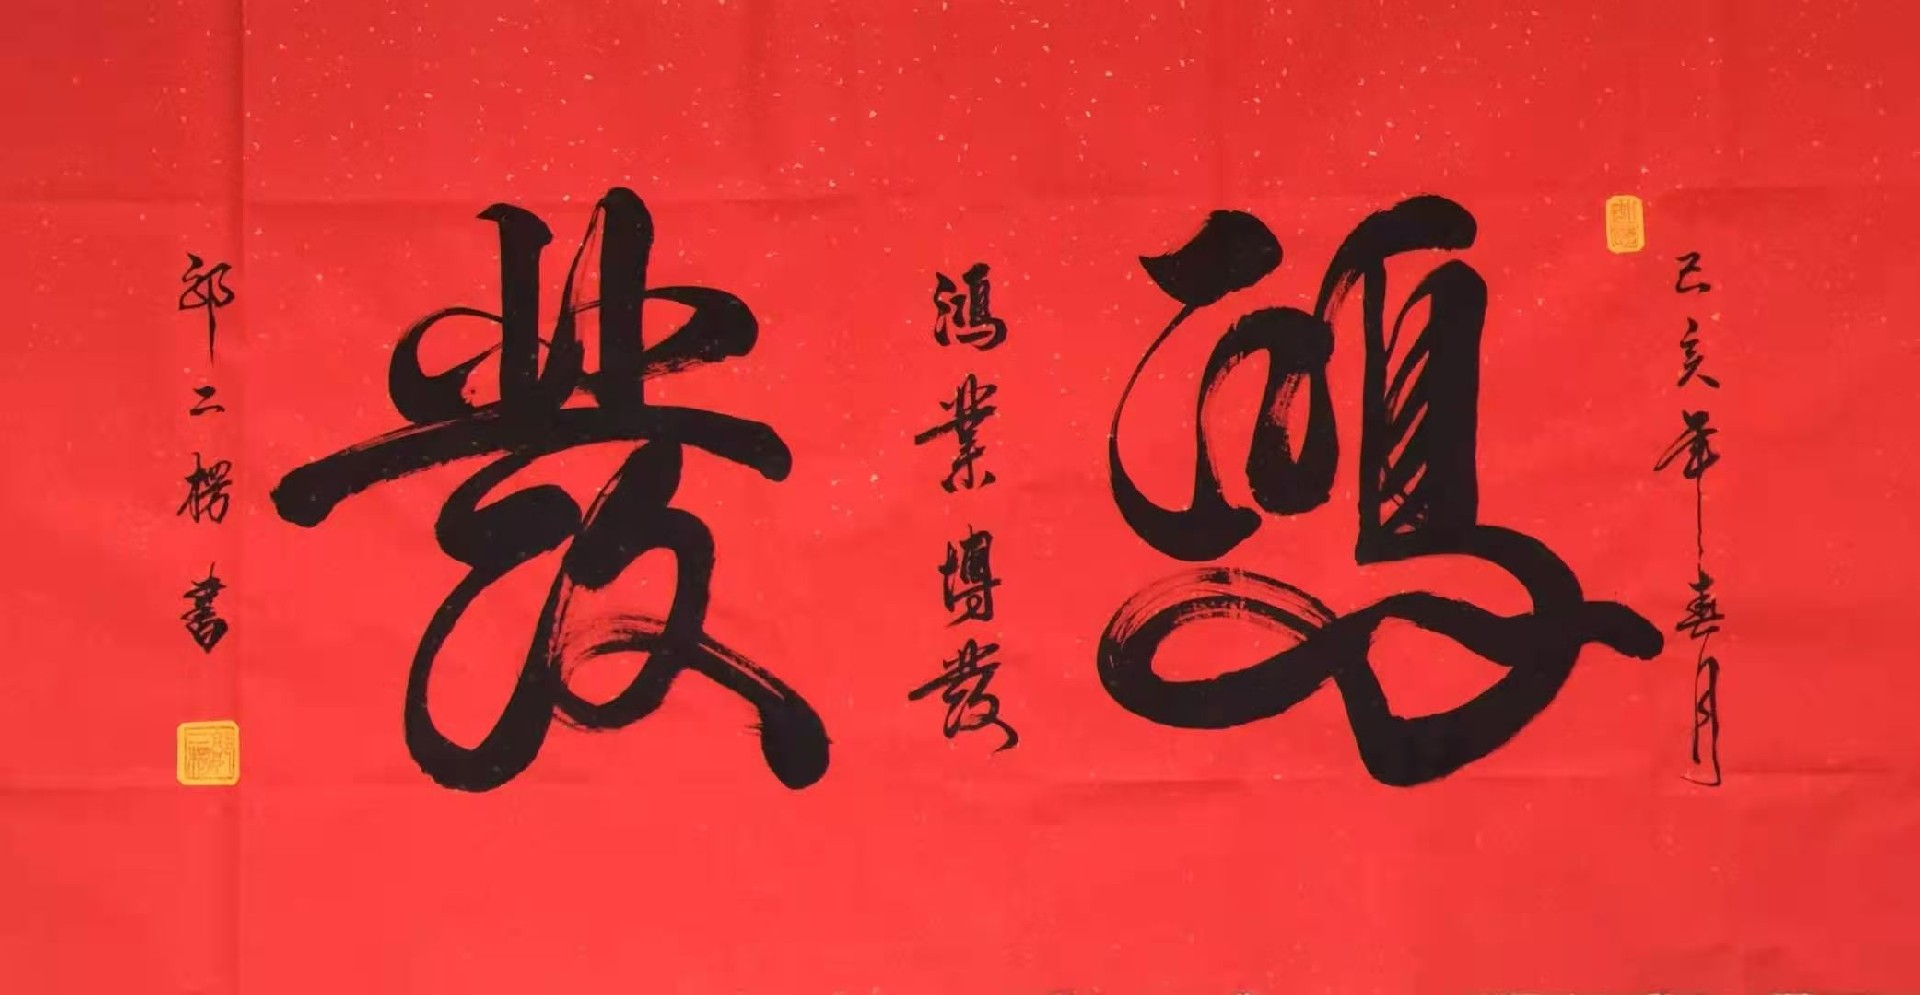 己亥年春月
鴻
鴻業博發
發
郭二楞書